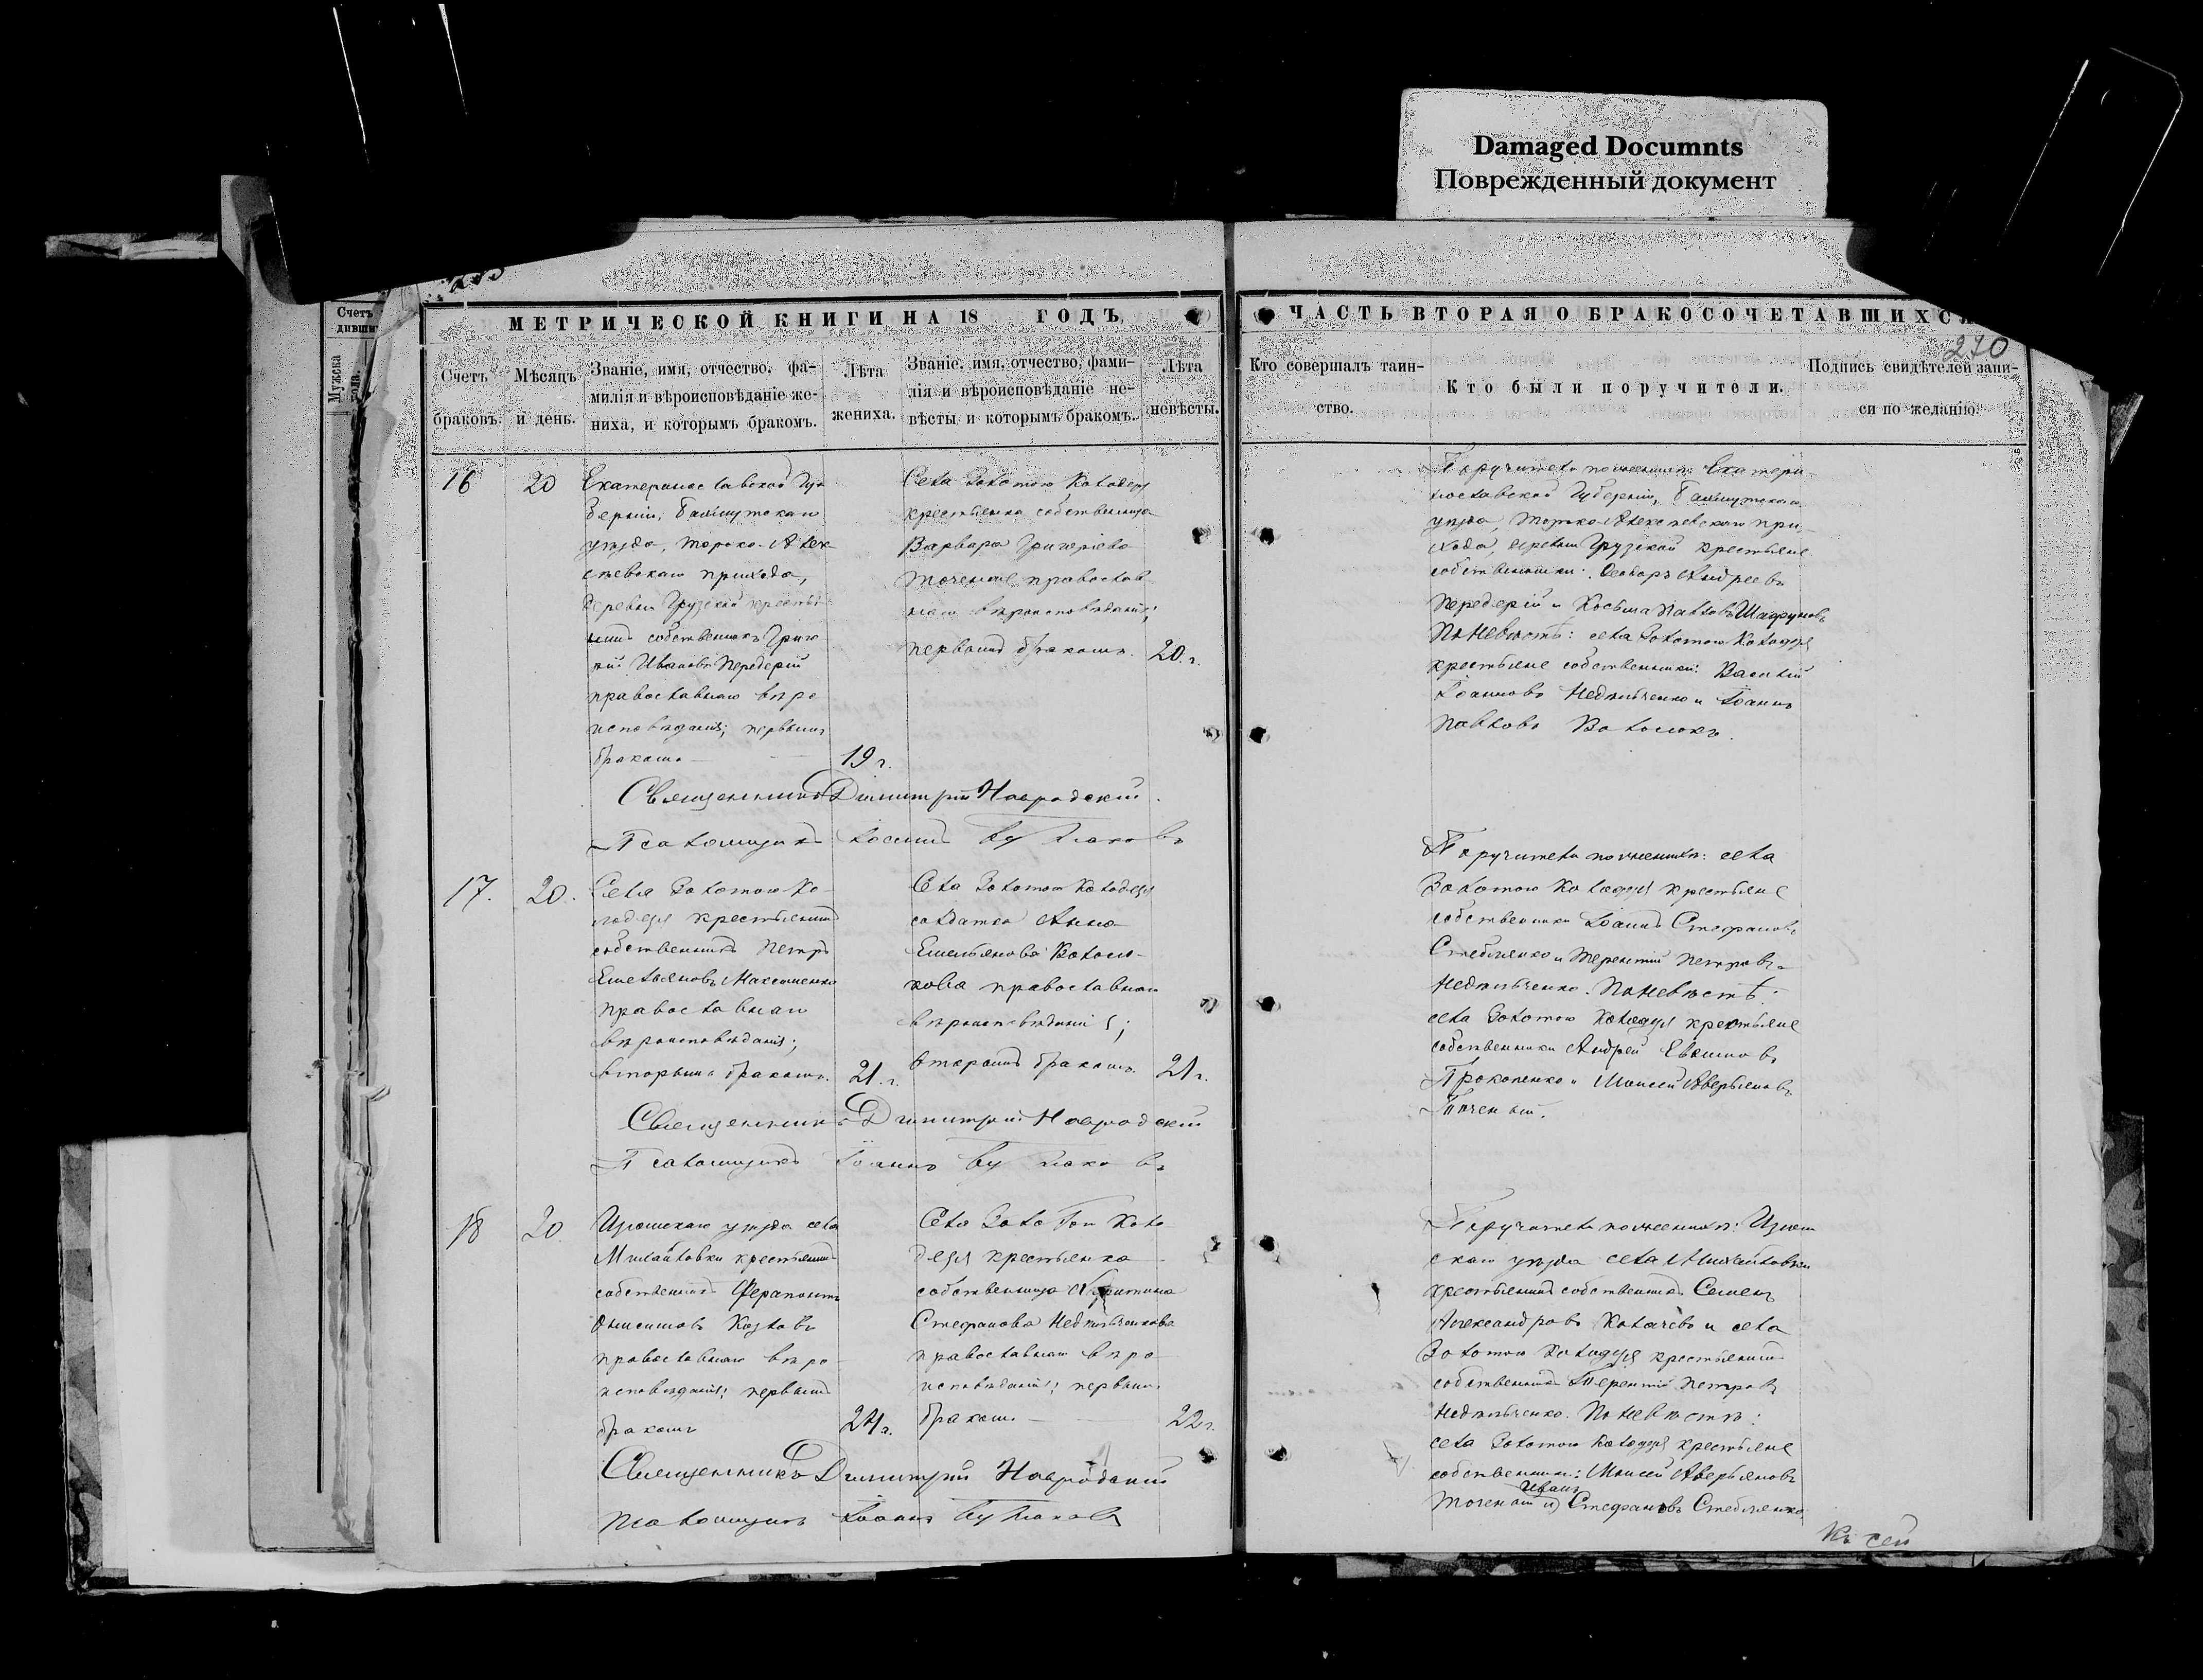 Damaged Documnts
Поврежденный документ
270
Счетъ
Мужска
МЕТРИЧЕСКОЙ КНИГИ НА 18 ГОДЪ,
ЧАСТЬ ВТОРАЯ О БРАКОСОЧЕТАВШИХСЯ
Счетъ браковъ.
Мѣсяцъ и день.
Званіе, имя, отчество, фа-
милія и вѣроисповѣданіе же-
ниха, и которымъ бракомъ.
Лѣта жениха.
Званіе, имя, отчество, фами-
лія и вѣроисповѣданіе не-
вѣсты и которымъ бракомъ.
Лѣта невѣсты.
Кто совершалъ таин-
ство.
Кто были поручители.
Подпись свидѣтелей запи-
си по желанію.
16
20
Екатеринославской Гу
берніи, Бахмутскаго
уѣзда, Торско-Алек
сѣевскаго прихода,
деревни Грузской крестья
нинъ собственникъ Григо
рій Ивановъ Передерій
православнаго вѣро
исповѣданія; первымъ
бракомъ
19 г.
Села Золотого Колодезя
крестьянка собственница
Варвара Григоріева
православ
наго вѣроисповѣданія;
первымъ бракомъ.
20. г.
Поручители по женихѣ: Екатери-
нославской Губерніи, Бахмутскаго
уѣзда, Торско-Алексѣевскаго при-
хода, деревни Грузской крестьяне
собственники: Ѳеодоръ Андреевъ
Передерій и Косьма Павловъ
По невѣстѣ: села Золотого Колодезя
крестьяне собственники: Василій
Іоанновъ Недѣльченко и Іоаннъ
Павловъ Волокъ.
Священникъ Димитрій Навродскій.
Псаломщикъ Іоаннъ
17.
20.
Села Золотого Ко-
лодезя крестьянинъ
собственникъ Петръ
Емельяновъ
православнаго
вѣроисповѣданія;
вторымъ бракомъ.
21. г.
Села Золотого Колодезя
солдатка Анна
Емельянова
кова православнаго
вѣроисповѣданія;
вторымъ бракомъ.
21 г.
Поручители по женихѣ: села
Золотого Колодезя крестьяне
собственники Іоаннъ Стефановъ
Стебленко и Терентій Петровъ
Недѣльченко. По невѣстѣ:
села Золотого Колодезя крестьяне
собственники Андрей
Прокопенко и Моисей Аверьяновъ
Точеный.
Священникъ Димитрій Навродскій
Псаломщикъ Іоаннъ
18
20.
Изюмскаго уѣзда села
Михайловки крестьянинъ
собственникъ Ферапонтъ
Онисимовъ Козловъ
православнаго вѣро-
исповѣданія; первымъ
бракомъ
24 г.
Села Золотого Коло
дезя крестьянка
собственница Харитина
Стефанова Недѣльченкова
православнаго вѣро
исповѣданія; первымъ
бракомъ
22 г.
Поручители по женихѣ: Изюм
скаго уѣзда села Михайловки
крестьянинъ собственникъ Семенъ
Александровъ Калачевъ и села
Золотого Колодезя крестьянинъ
собственникъ Терентій Петровъ
Недѣльченко. По невѣстѣ:
села Золотого Колодезя крестьяне
собственники: Моисей Аверьяновъ
Иванъ
Точеный и Стефановъ Стебленко
Священникъ Димитрій Навродскій
Псаломщикъ Іоаннъ
Къ сей